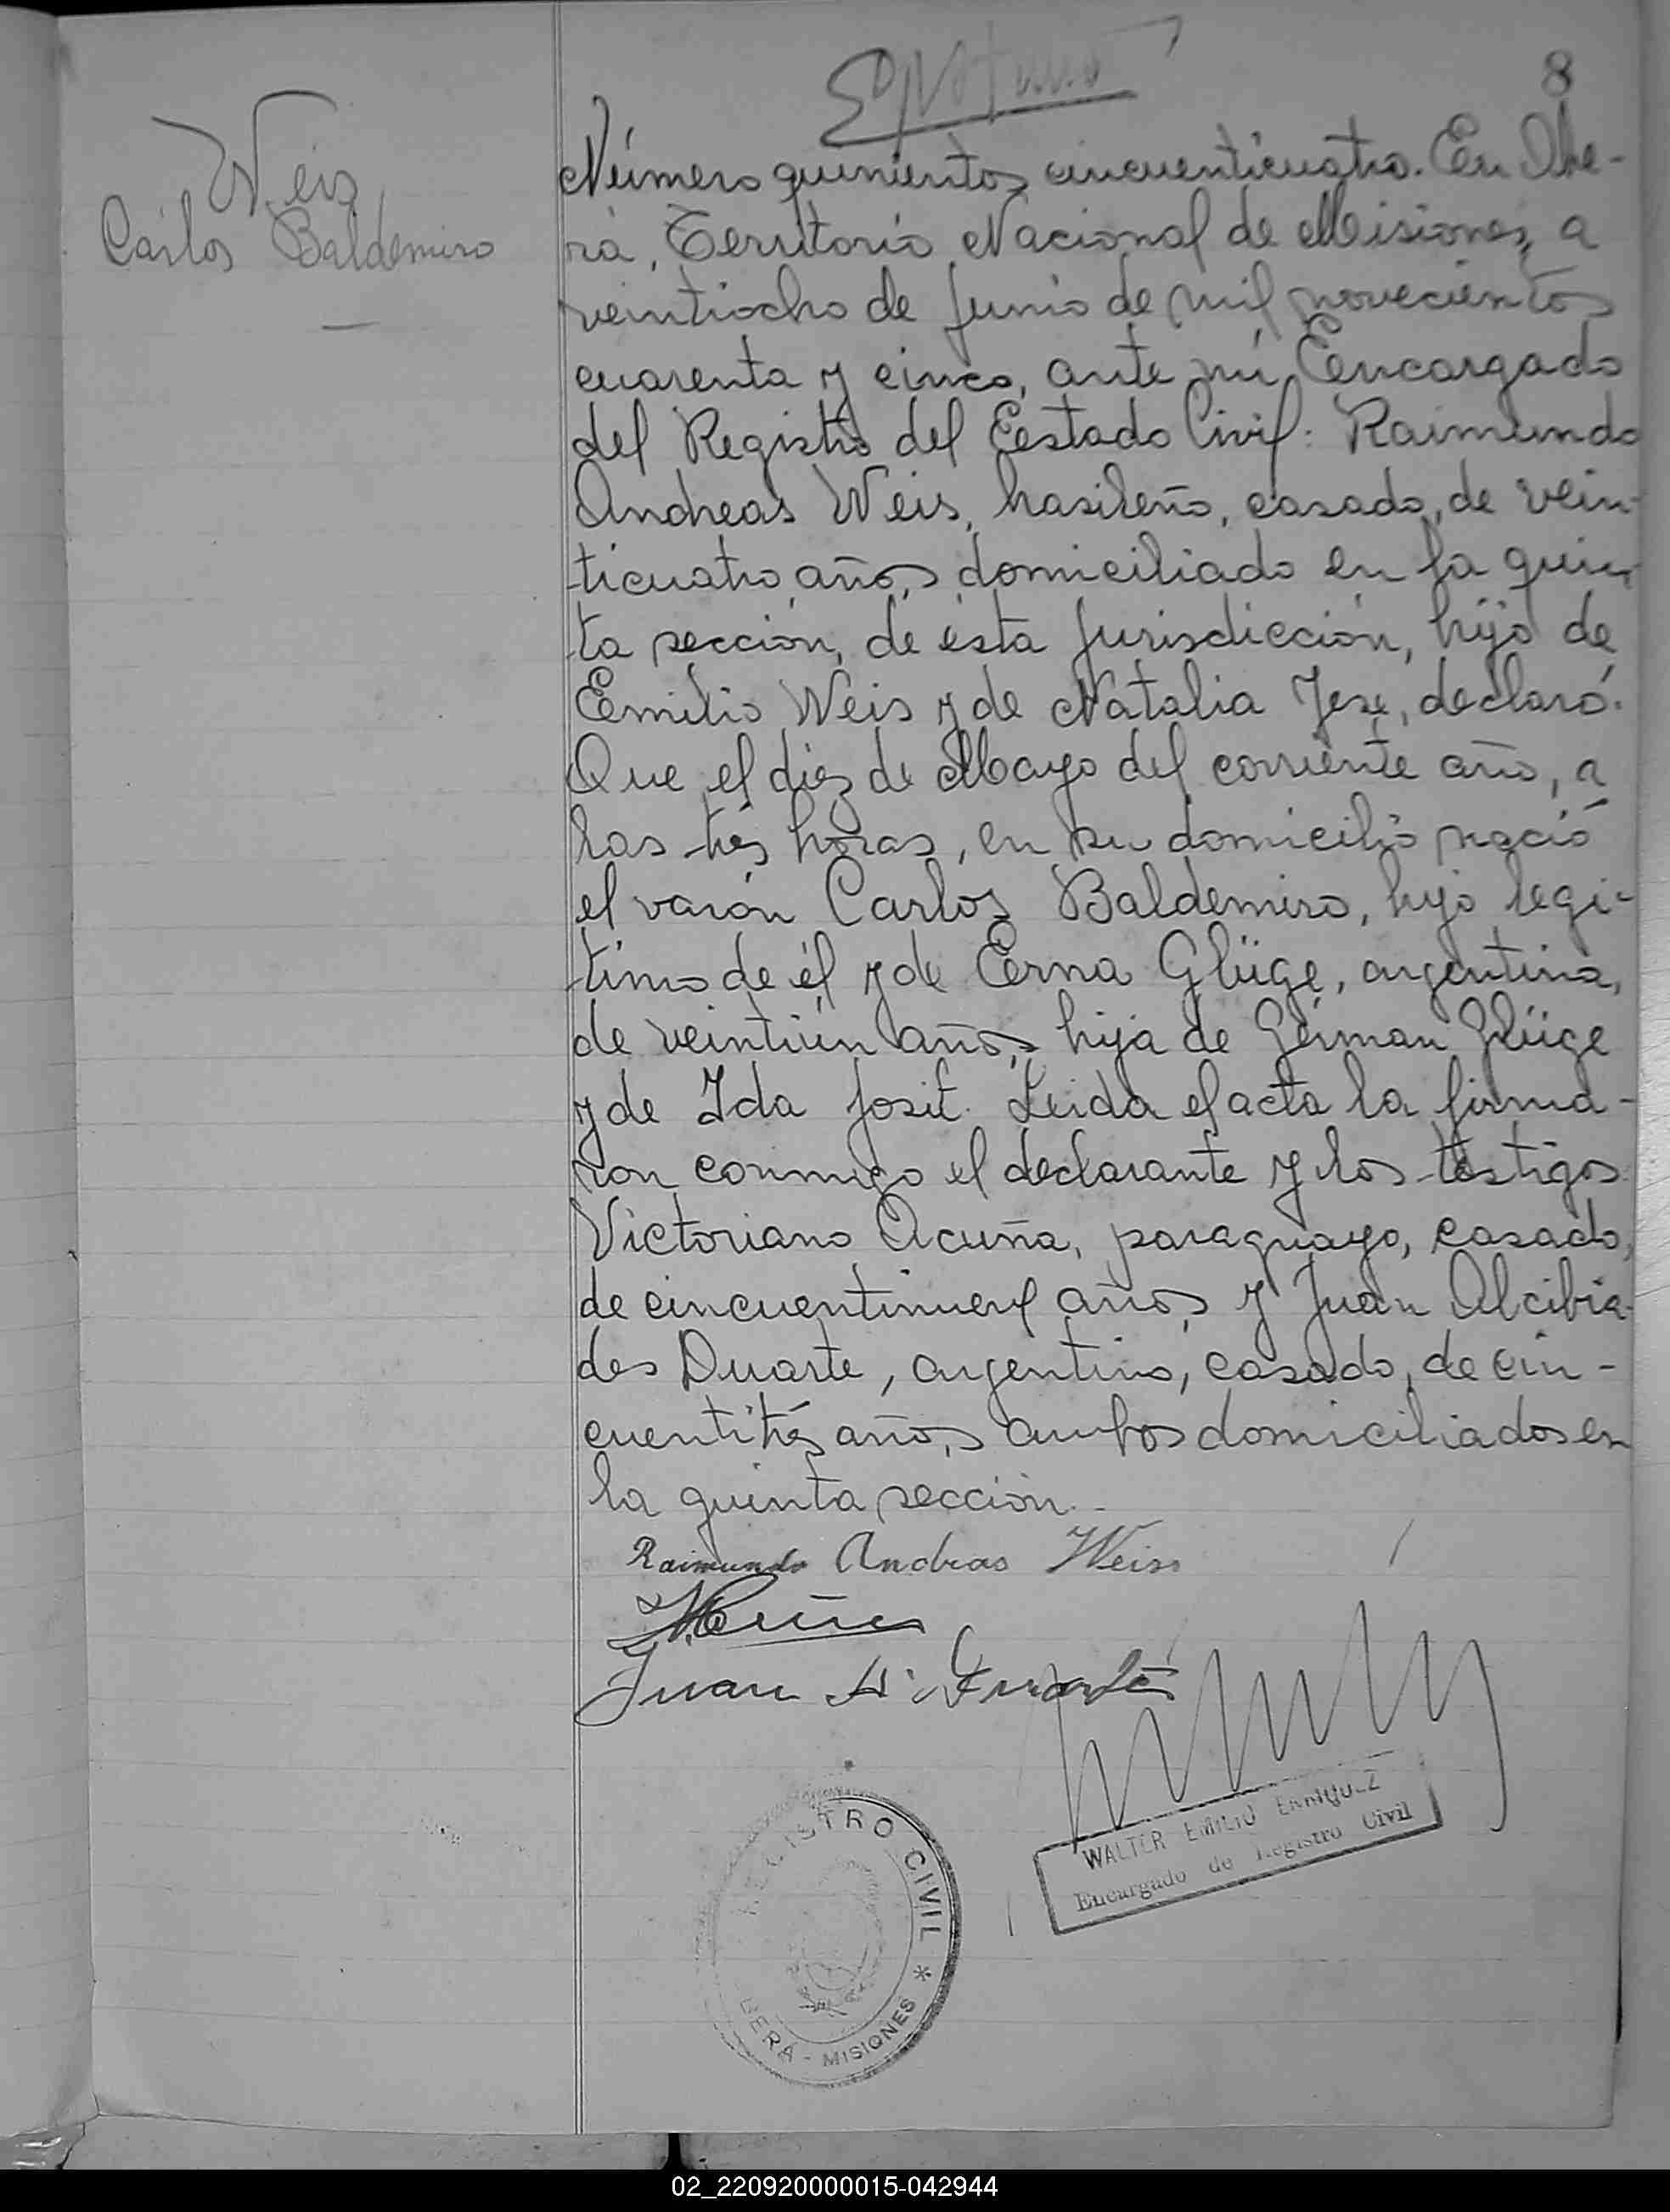 8
Weis
Carlos Baldemiro
Número quinientos cincuenticuatro. En Obe-
rá, Territorio Nacional de Misiones, a
veintiocho de Junio de mil novecientos
cuarenta y cinco, ante mí Encargado
del Registro del Estado Civil: Raimundo
Andreas Weis, brasileño, casado, de vein-
ticuatro años, domiciliado en la quin-
ta sección, de ésta Jurisdicción, hijo de
Emilio Weis y de Natalia Jese, declaró:
Que el diez de Mayo del corriente año, a
las trés horas, en su domicilio nació
el varón Carlos Baldemiro, hijo legi-
timo de él y de Erna Glüge, argentina,
de veintiún años, hija de Gérman Glüge
y de Ida Josit. Leida el acta la firma-
ron conmigo el declarante y los testigos:
Victoriano Acuña, paraguayo, casado,
de cincuentinueve años, y Juan Alcibia-
des Duarte, argentino, casado, de cin-
cuentitrés años, ambos domiciliados en
la quinta sección.-
Raimundo Andreas Weiss
Juan A. Duarte
REGISTRO CIVIL *
OBERÁ - MISIONES
WALTER EMILIO ENRIQUEZ
Encargado de Registro Civil
02_220920000015-042944